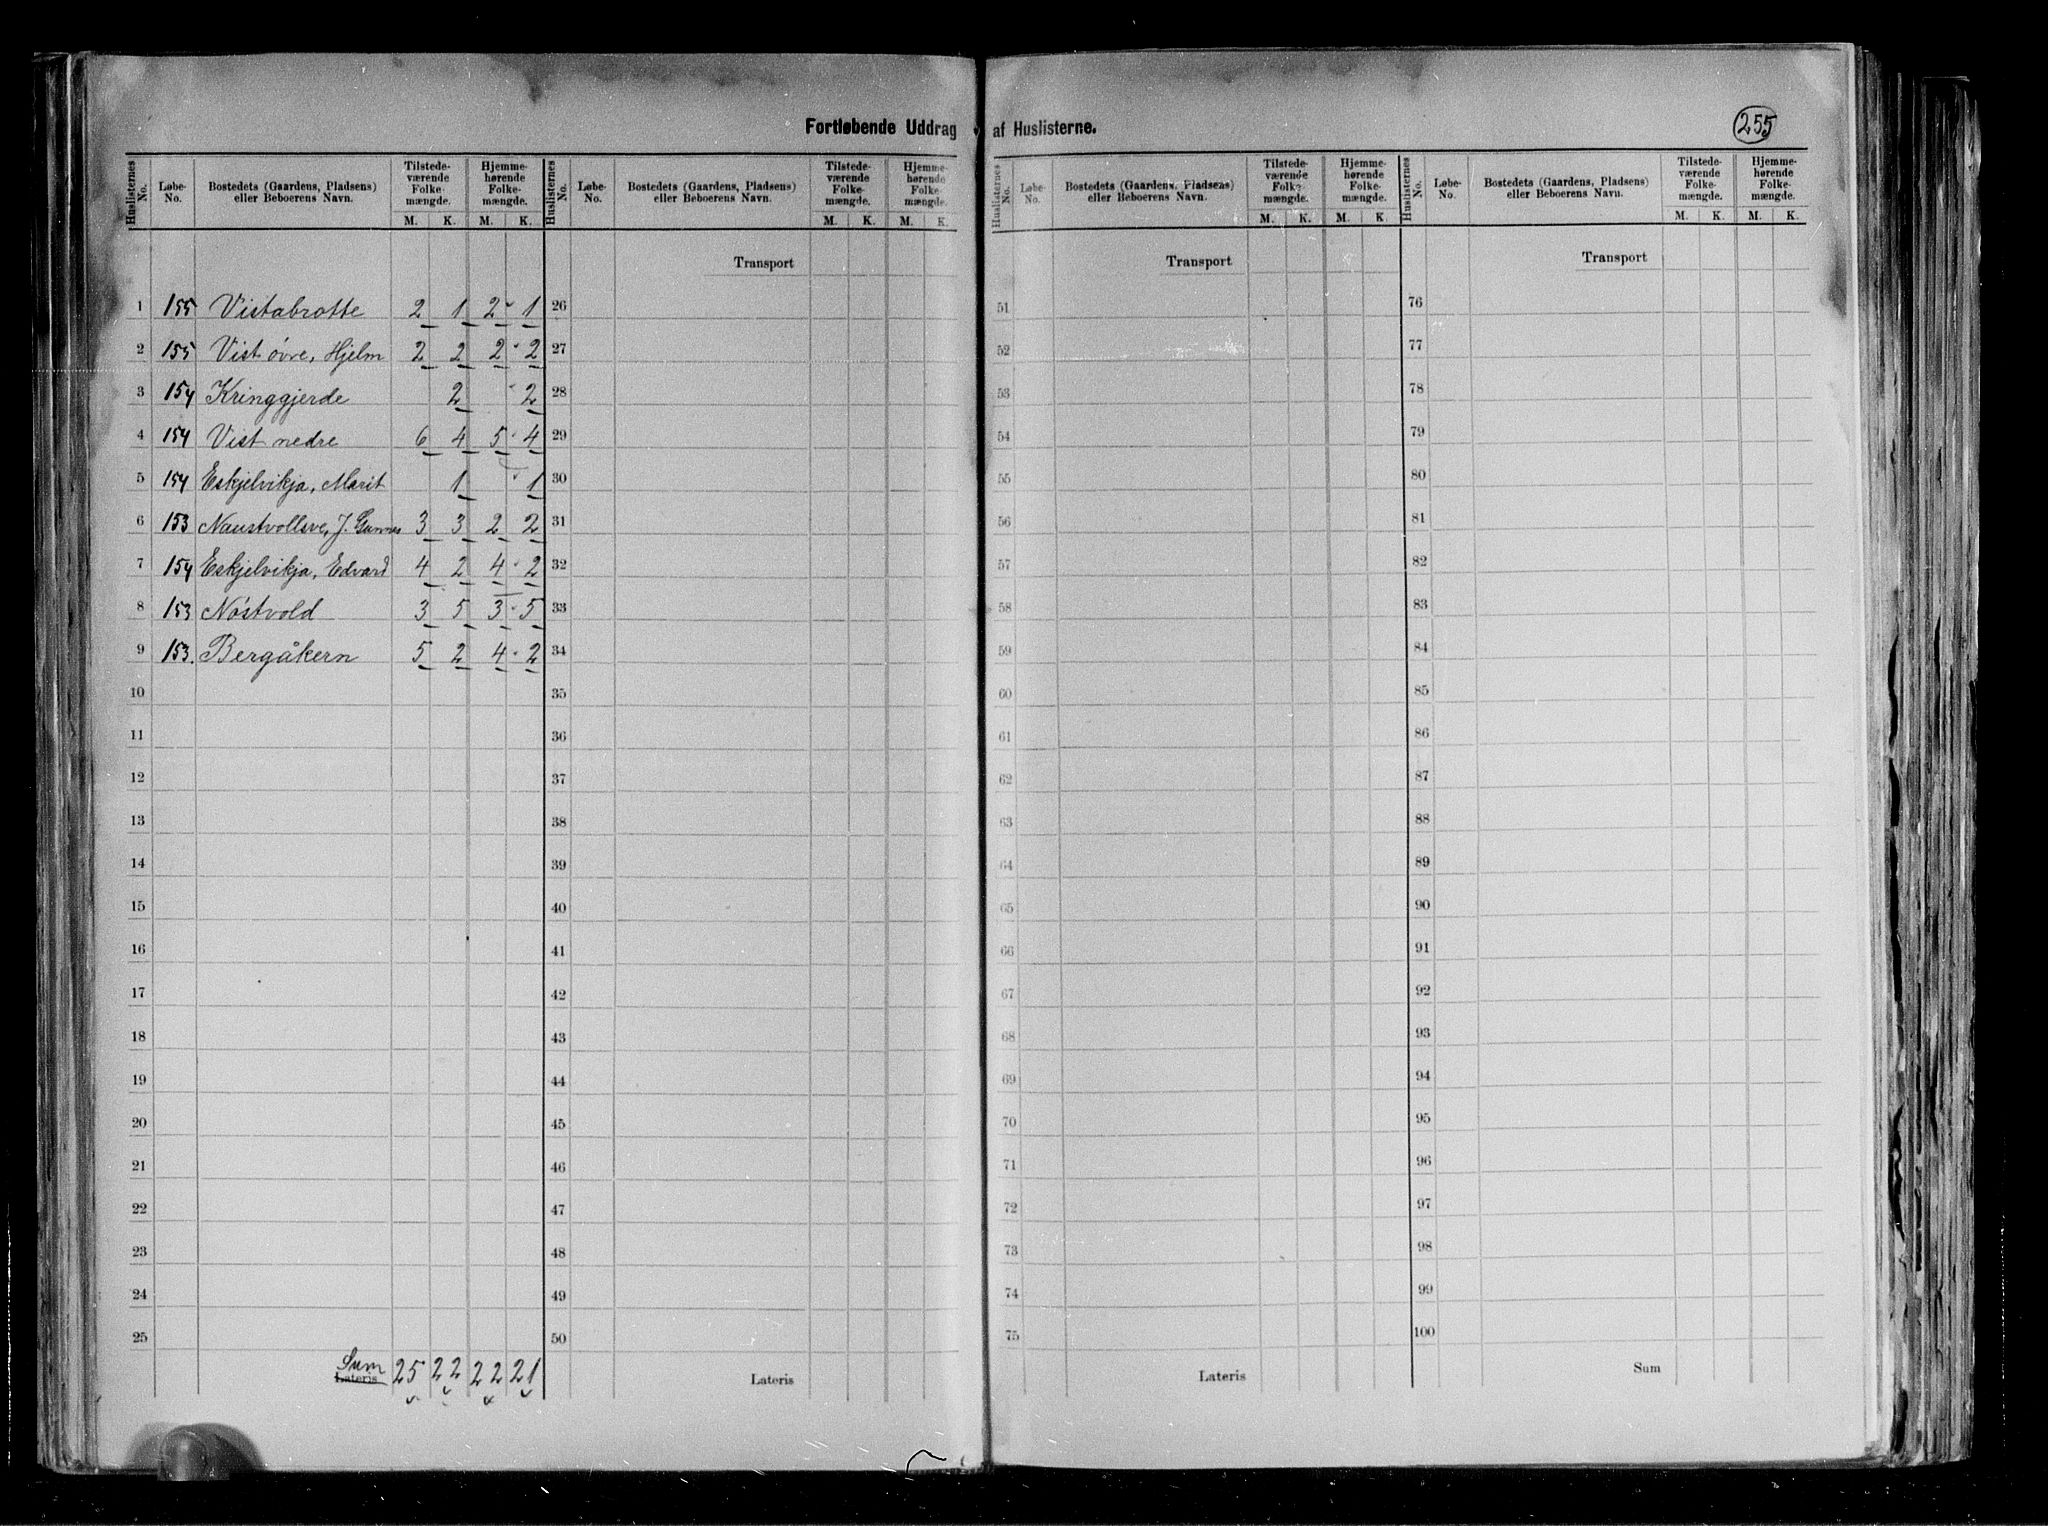 Fortløbende Uddrag af Huslisterne.
255
Huslisternes No. | Løbe-No. | Bostedets (Gaardens, Pladsens) eller Beboerens Navn. | Tilstedeværende Folkemængde. M. K. | Hjemmehørende Folkemængde. M. K. | Huslisternes No. | Løbe-No. | Bostedets (Gaardens, Pladsens) eller Beboerens Navn. | Tilstedeværende Folkemængde. M. K. | Hjemmehørende Folkemængde. M. K. | Huslisternes No. | Løbe-No. | Bostedets (Gaardens, Pladsens) eller Beboerens Navn. | Tilstedeværende Folkemængde. M. K. | Hjemmehørende Folkemængde. M. K. | Huslisternes No. | Løbe-No. | Bostedets (Gaardens, Pladsens) eller Beboerens Navn. | Tilstedeværende Folkemængde. M. K. | Hjemmehørende Folkemængde. M. K.
Transport Transport Transport
1 155 Vistabrotte 2 1 2 1 26 51 76
2 155 Vist øvre, Hjelm 2 2 2 2 27 52 77
3 154 Kringgjerde 2 2 28 53 78
4 154 Vist nedre 6 4 5 4 29 54 79
5 154 Eskjelvikja, Marit 1 1 30 55 80
6 153 Naustvollsve, J. Gunnes 3 3 2 2 31 56 81
7 154 Eskjelvikja, Edvard 4 2 4 2 32 57 82
8 153 Nøstvold 3 5 3 5 33 58 83
9 153. Bergåkern 5 2 4 2 34 59 84
10 35 60 85
11 36 61 86
12 37 62 87
13 38 63 88
14 39 64 89
15 40 65 90
16 41 66 91
17 42 67 92
18 43 68 93
19 44 69 94
20 45 70 95
21 46 71 96
22 47 72 97
23 48 73 98
24 49 74 99
25 50 75 100
Sum
Lateris 25 22 22 21 Lateris Lateris Sum